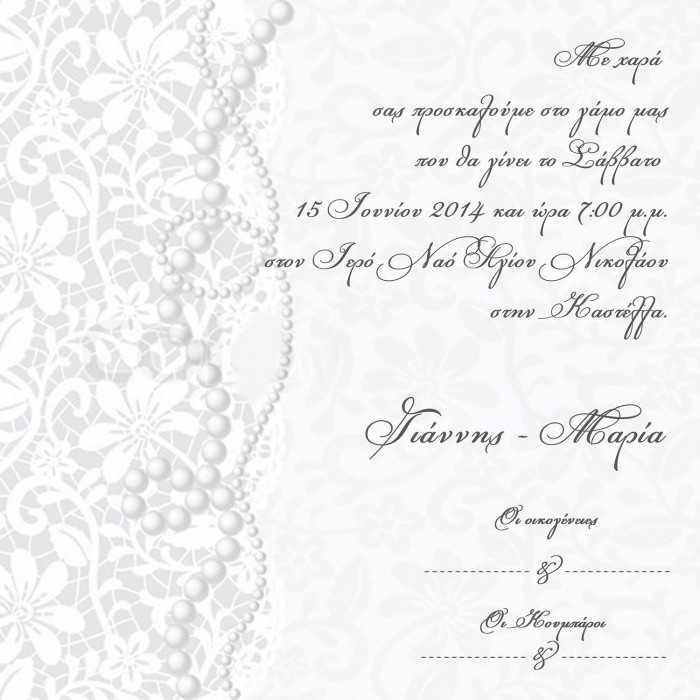 Με χαρά
σας προσκαλούμε στο γάμο μας
που θα γίνει το Σάββατο
15 Ιουνίου 2014 και ώρα 7:00 μ.μ.
στον Ιερό Ναό Αγίου Νικολάου
στην Καστέλλα.
Γιάννης - Μαρία
Οι οικογένειες
--------------- & ---------------
Οι Κουμπάροι
--------------- & ---------------